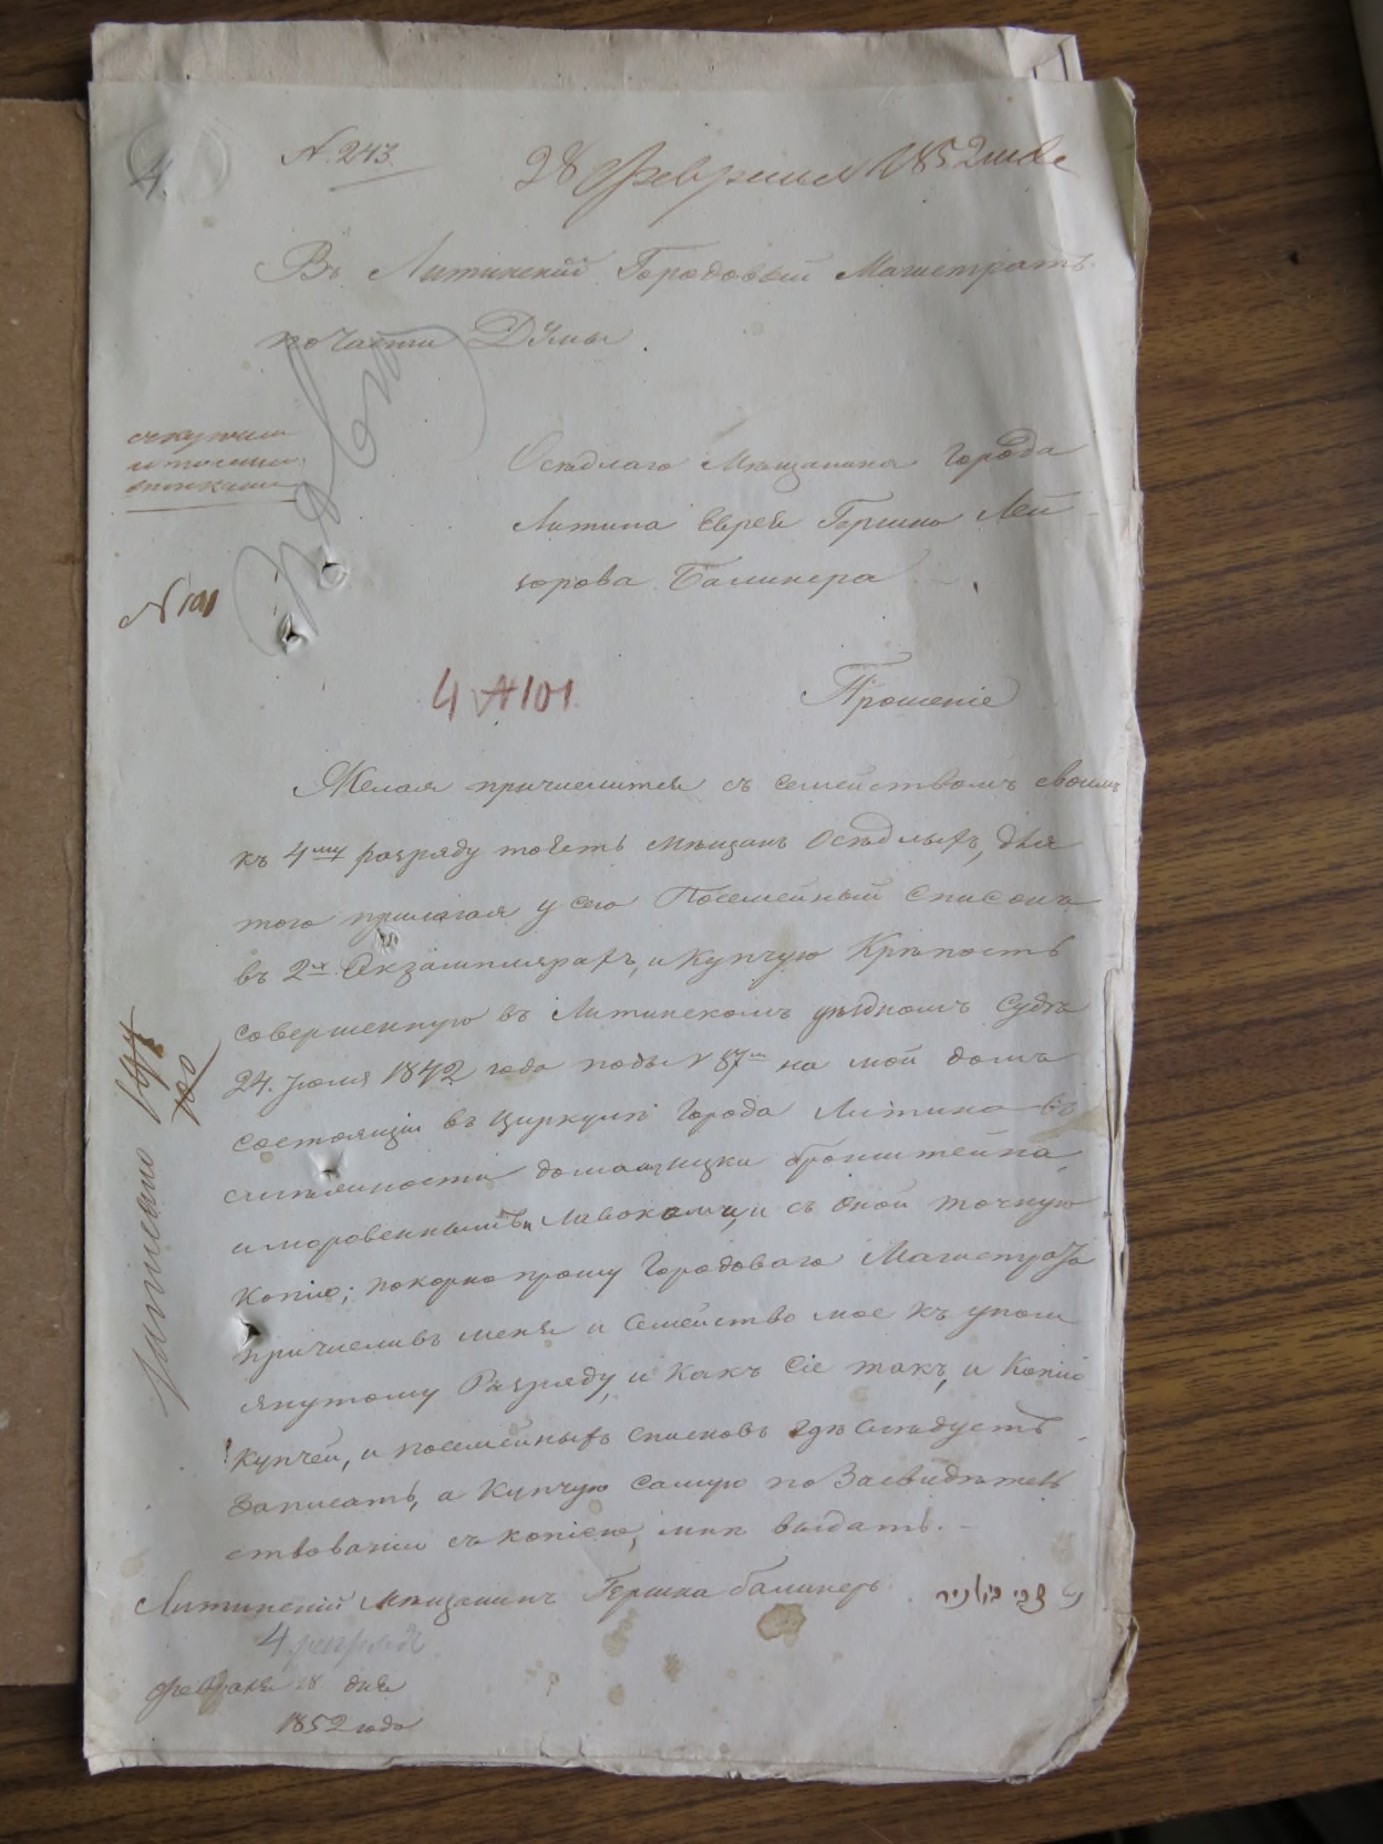 4.
N. 243.
28 февраля 1852 года
Въ Литинскій Городовый Магистратъ
по части Думы.
Осѣдлаго Мѣщанина города
Литина Еврея Гершко Лей
зорова Балинера.
N 101
4 N 101.
Прошеніе
Желая причислится съ семействомъ своимъ
къ 4му разряду то есть мѣщанъ осѣдлыхъ, для
того прилагая у сего Посемейный списокъ
въ 2х Екзамплярахъ, и Купчую Крѣпость
совершенную въ Литинскомъ уѣздномъ Судѣ
24. Іюля 1842 года подъ N 87м на мой домъ
состоящій въ циркулѣ Города Литина въ
домашницки Бронштейна,
лавоками, и съ оной точную
Копію; покорно прошу Городоваго Магистрата
причисливъ меня и Семейство мое къ упом
янутому Разряду, и какъ сіе такъ, и Копію
купчей, и посемейныхъ списковъ гдѣ слѣдуетъ
записать, а Купчую самую по Засвидѣтель
ствованіи съ копіею, мнѣ выдать. —
Литинскій мѣщанинъ Гершко Балинеръ
4 разрядъ
Февраля 28 дня
1852 года